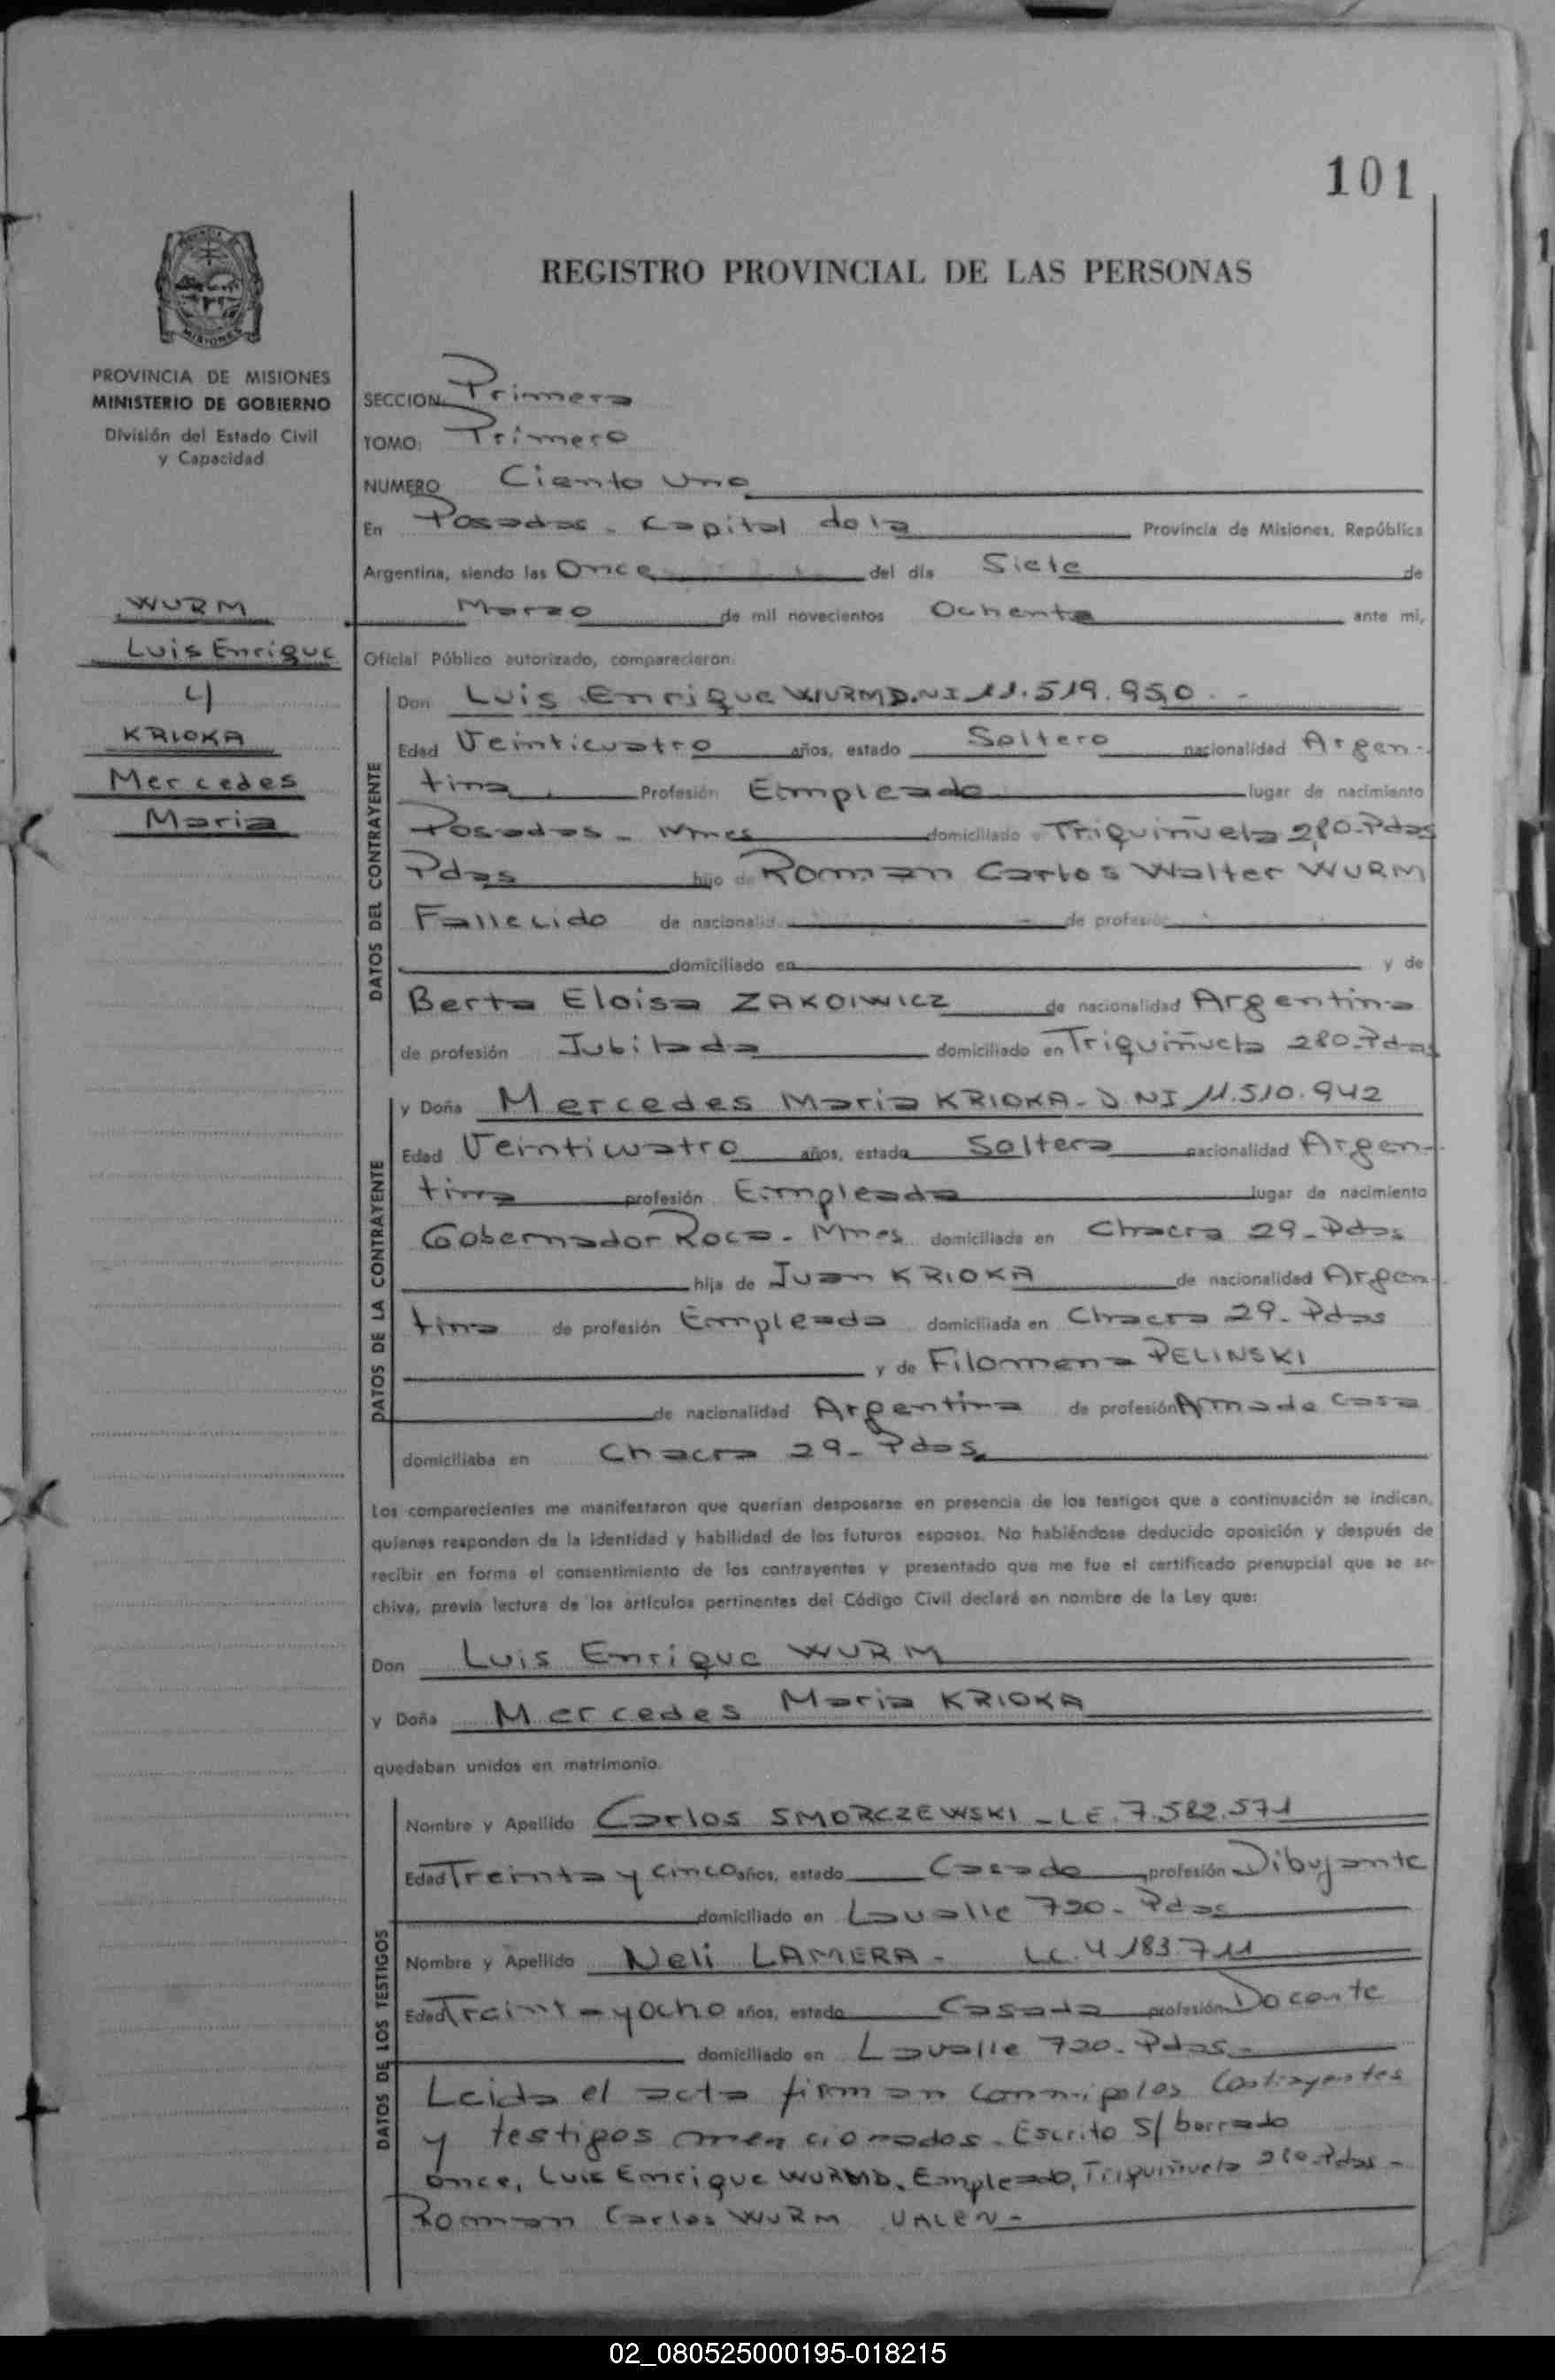 101
REGISTRO PROVINCIAL DE LAS PERSONAS
MISIONES
PROVINCIA DE MISIONES
MINISTERIO DE GOBIERNO
División del Estado Civil
y Capacidad
WURM
Luis Enrique
y
KRIOKA
Mercedes
Maria
SECCION: Primera
TOMO: Primero
NUMERO Ciento uno
En Posadas - Capital de la Provincia de Misiones, República
Argentina, siendo las Once del día Siete de
Marzo de mil novecientos Ochenta ante mi,
Oficial Público autorizado, comparecieron:
Don Luis Enrique WURM D.NI 11.519.950 - -
Edad Veinticuatro años, estado Soltero nacionalidad Argen-
tina Profesión Empleado lugar de nacimiento
Posadas - Mnes domiciliado Triquiñuela 280-Pdas
Pdas hijo de Roman Carlos Walter WURM
Fallecido de nacionalid de profesión
domiciliado en y de
Berta Eloisa ZAKOIWICZ de nacionalidad Argentina
de profesión Jubilada domiciliado en Triquiñuela 280-Pdas
y Doña Mercedes Maria KRIOKA - D.NI 11.510.942
Edad Veinticuatro años, estado Soltera nacionalidad Argen-
tina profesión Empleada lugar de nacimiento
Gobernador Roca - Mnes domiciliada en Chacra 29 - Pdas
hija de Juan KRIOKA de nacionalidad Argen-
tina de profesión Empleado domiciliada en Chacra 29 - Pdas
y de Filomena PELINSKI
de nacionalidad Argentina de profesión Ama de casa
domiciliaba en Chacra 29 - Pdas
Los comparecientes me manifestaron que querían desposarse en presencia de los testigos que a continuación se indican,
quienes responden de la identidad y habilidad de los futuros esposos. No habiéndose deducido oposición y después de
recibir en forma el consentimiento de los contrayentes y presentado que me fue el certificado prenupcial que se ar-
chiva, previa lectura de los artículos pertinentes del Código Civil declaré en nombre de la Ley que:
Don Luis Enrique WURM
y Doña Mercedes Maria KRIOKA
quedaban unidos en matrimonio.
Nombre y Apellido Carlos SMORCZEWSKI - LE. 7.582.571
Edad Treinta y cinco años, estado Casado profesión Dibujante
domiciliado en Lavalle 720 - Pdas
Nombre y Apellido Neli LAMERA - LC. 4.183.711
Edad Treinta y ocho años, estado Casada profesión Docente
domiciliado en Lavalle 720 - Pdas -
Leida el acta firman conmigo los Contrayentes
y testigos mencionados - Escrito S/ borrado
once, Luis Enrique WURM D, Empleado, Triquiñuela 280-Pdas -
Roman Carlos WURM VALEN -
DATOS DEL CONTRAYENTE
DATOS DE LA CONTRAYENTE
DATOS DE LOS TESTIGOS
02_080525000195-018215